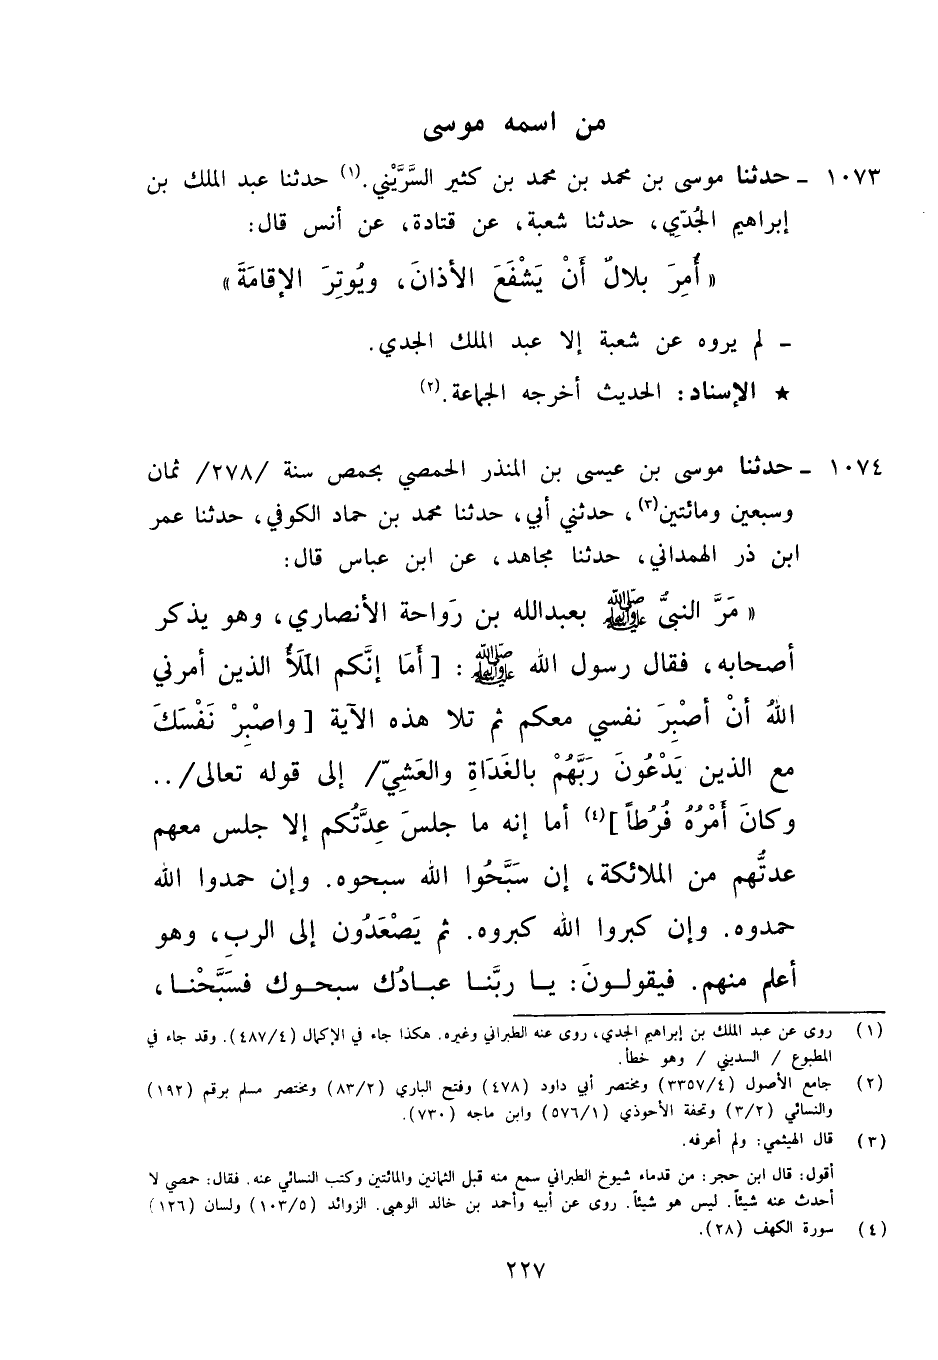 من اسمه موسى
١٠٧٣ ـ حدثنا موسى بن محمد بن محمد بن كثير السَّرَّيْني.(١) حدثنا عبد الملك بن
إبراهيم الجُدّي، حدثنا شعبة، عن قتادة، عن أنس قال:
« أُمِرَ بلالٌ أَنْ يَشْفَعَ الأذانَ، ويُوتِرَ الإقامَةَ»
ـ لم يروه عن شعبة إلا عبد الملك الجدي.
★ الإسناد: الحديث أخرجه الجماعة.(٢)
١٠٧٤ ـ حدثنا موسى بن عيسى بن المنذر الحمصي بحمص سنة /٢٧٨/ ثمان
وسبعين ومائتين(٣)، حدثني أبي، حدثنا محمد بن حماد الكوفي، حدثنا عمر
ابن ذر الهمداني، حدثنا مجاهد، عن ابن عباس قال:
« مَرَّ النبيُّ ﷺ بعبدالله بن رَواحة الأنصاري، وهو يذكر
أصحابه، فقال رسول الله ﷺ : [ أَمَا إنَّكم المَلَأُ الذين أمرني
اللهُ أنْ أصْبِرَ نفسي معكم ثم تلا هذه الآية [ واصْبِرْ نَفْسَكَ
مع الذين يَدْعُونَ رَبَّهُمْ بالغَدَاةِ والعَشِيّ/ إلى قوله تعالى/ ..
وكانَ أَمْرُهُ فُرُطاً ](٤) أما إنه ما جلسَ عِدَّتُكم إلا جلس معهم
عدتُّهم من الملائكة، إن سَبَّحُوا الله سبحوه. وإن حمدوا الله
حمدوه. وإن كبروا الله كبروه. ثم يَصْعَدُون إلى الرب، وهو
أعلم منهم. فيقولونَ: يا ربَّنا عبادُك سبحوك فسَبَّحْنا،
(١) روى عن عبد الملك بن إبراهيم الجدي، روى عنه الطبراني وغيره. هكذا جاء في الإكمال (٤٨٧/٤). وقد جاء في
المطبوع / السديني / وهو خطأ.
(٢) جامع الأصول (٣٣٥٧/٤) ومختصر أبي داود (٤٧٨) وفتح الباري (٨٣/٢) ومختصر مسلم برقم (١٩٢)
والنسائي (٣/٢) وتحفة الأحوذي (٥٧٦/١) وابن ماجه (٧٣٠).
(٣) قال الهيثمي: ولم أعرفه.
أقول: قال ابن حجر: من قدماء شيوخ الطبراني سمع منه قبل الثمانين والمائتين وكتب النسائي عنه. فقال: حمصي لا
أحدث عنه شيئاً. ليس هو شيئاً. روى عن أبيه وأحمد بن خالد الوهبي. الزوائد (١٠٣/٥) ولسان (١٢٦)
(٤) سورة الكهف (٢٨).
٢٢٧